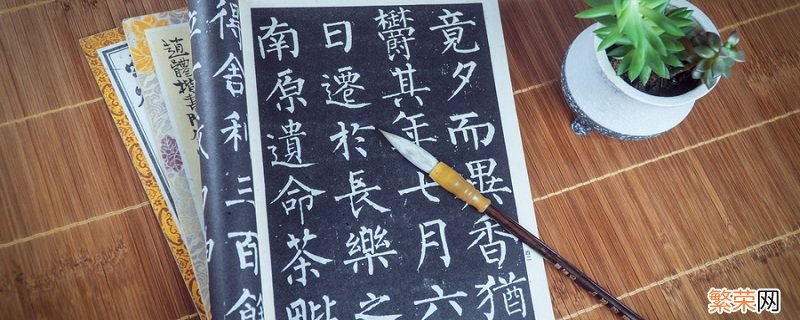 竟夕而異香猶
欝其年七月六
日遷於長樂之
南原遺命荼毗
得舍利三百餘
繁荣网